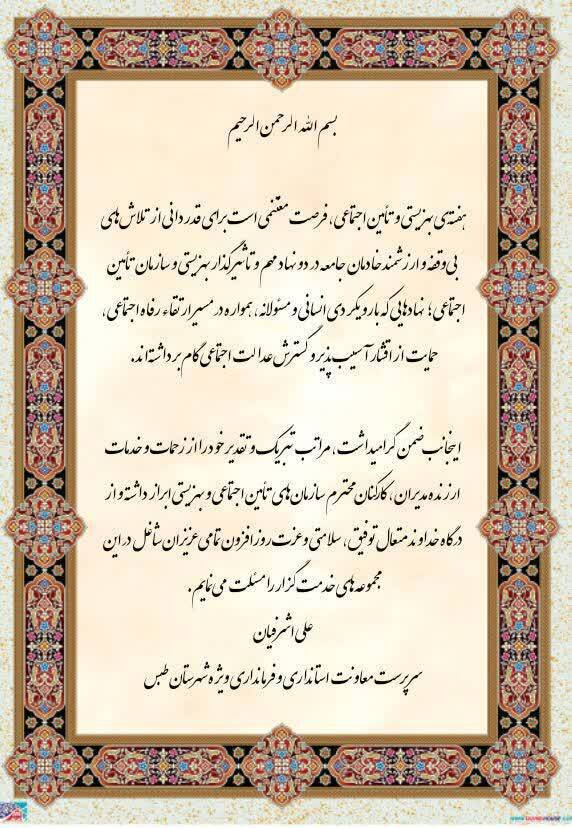 بسم الله الرحمن الرحیم
هفته‌ی بهزیستی و تأمین اجتماعی، فرصت مغتنمی است برای قدردانی از تلاش‌های
بی‌وقفه و ارزشمند خادمان جامعه در دو نهاد مهم و تأثیرگذار بهزیستی و سازمان تأمین
اجتماعی؛ نهادهایی که با رویکردی انسانی و مسئولانه، همواره در مسیر ارتقاء رفاه اجتماعی،
حمایت از اقشار آسیب پذیر و گسترش عدالت اجتماعی گام برداشته‌اند.
اینجانب ضمن گرامیداشت، مراتب تبریک و تقدیر خود را از زحمات و خدمات
ارزنده مدیران، کارکنان محترم سازمان‌های تأمین اجتماعی و بهزیستی ابراز داشته و از
درگاه خداوند متعال توفیق، سلامتی و عزت روزافزون تمامی عزیزان شاغل در این
مجموعه‌های خدمت گزار را مسئلت می‌نمایم.
علی اشرفیان
سرپرست معاونت استانداری و فرمانداری ویژه شهرستان طبس